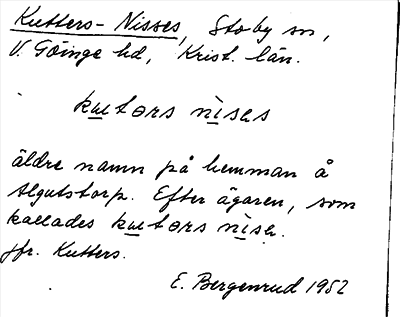 Kutters-Nisses, Stoby sn,
V. Göinge hd, Krist. län.
kutərs nisəs
äldre namn på hemman å
Algutstorp. Efter ägaren, som
kallades kutərs nisə.
Jfr. Kutters.
E. Bergenrud 1952